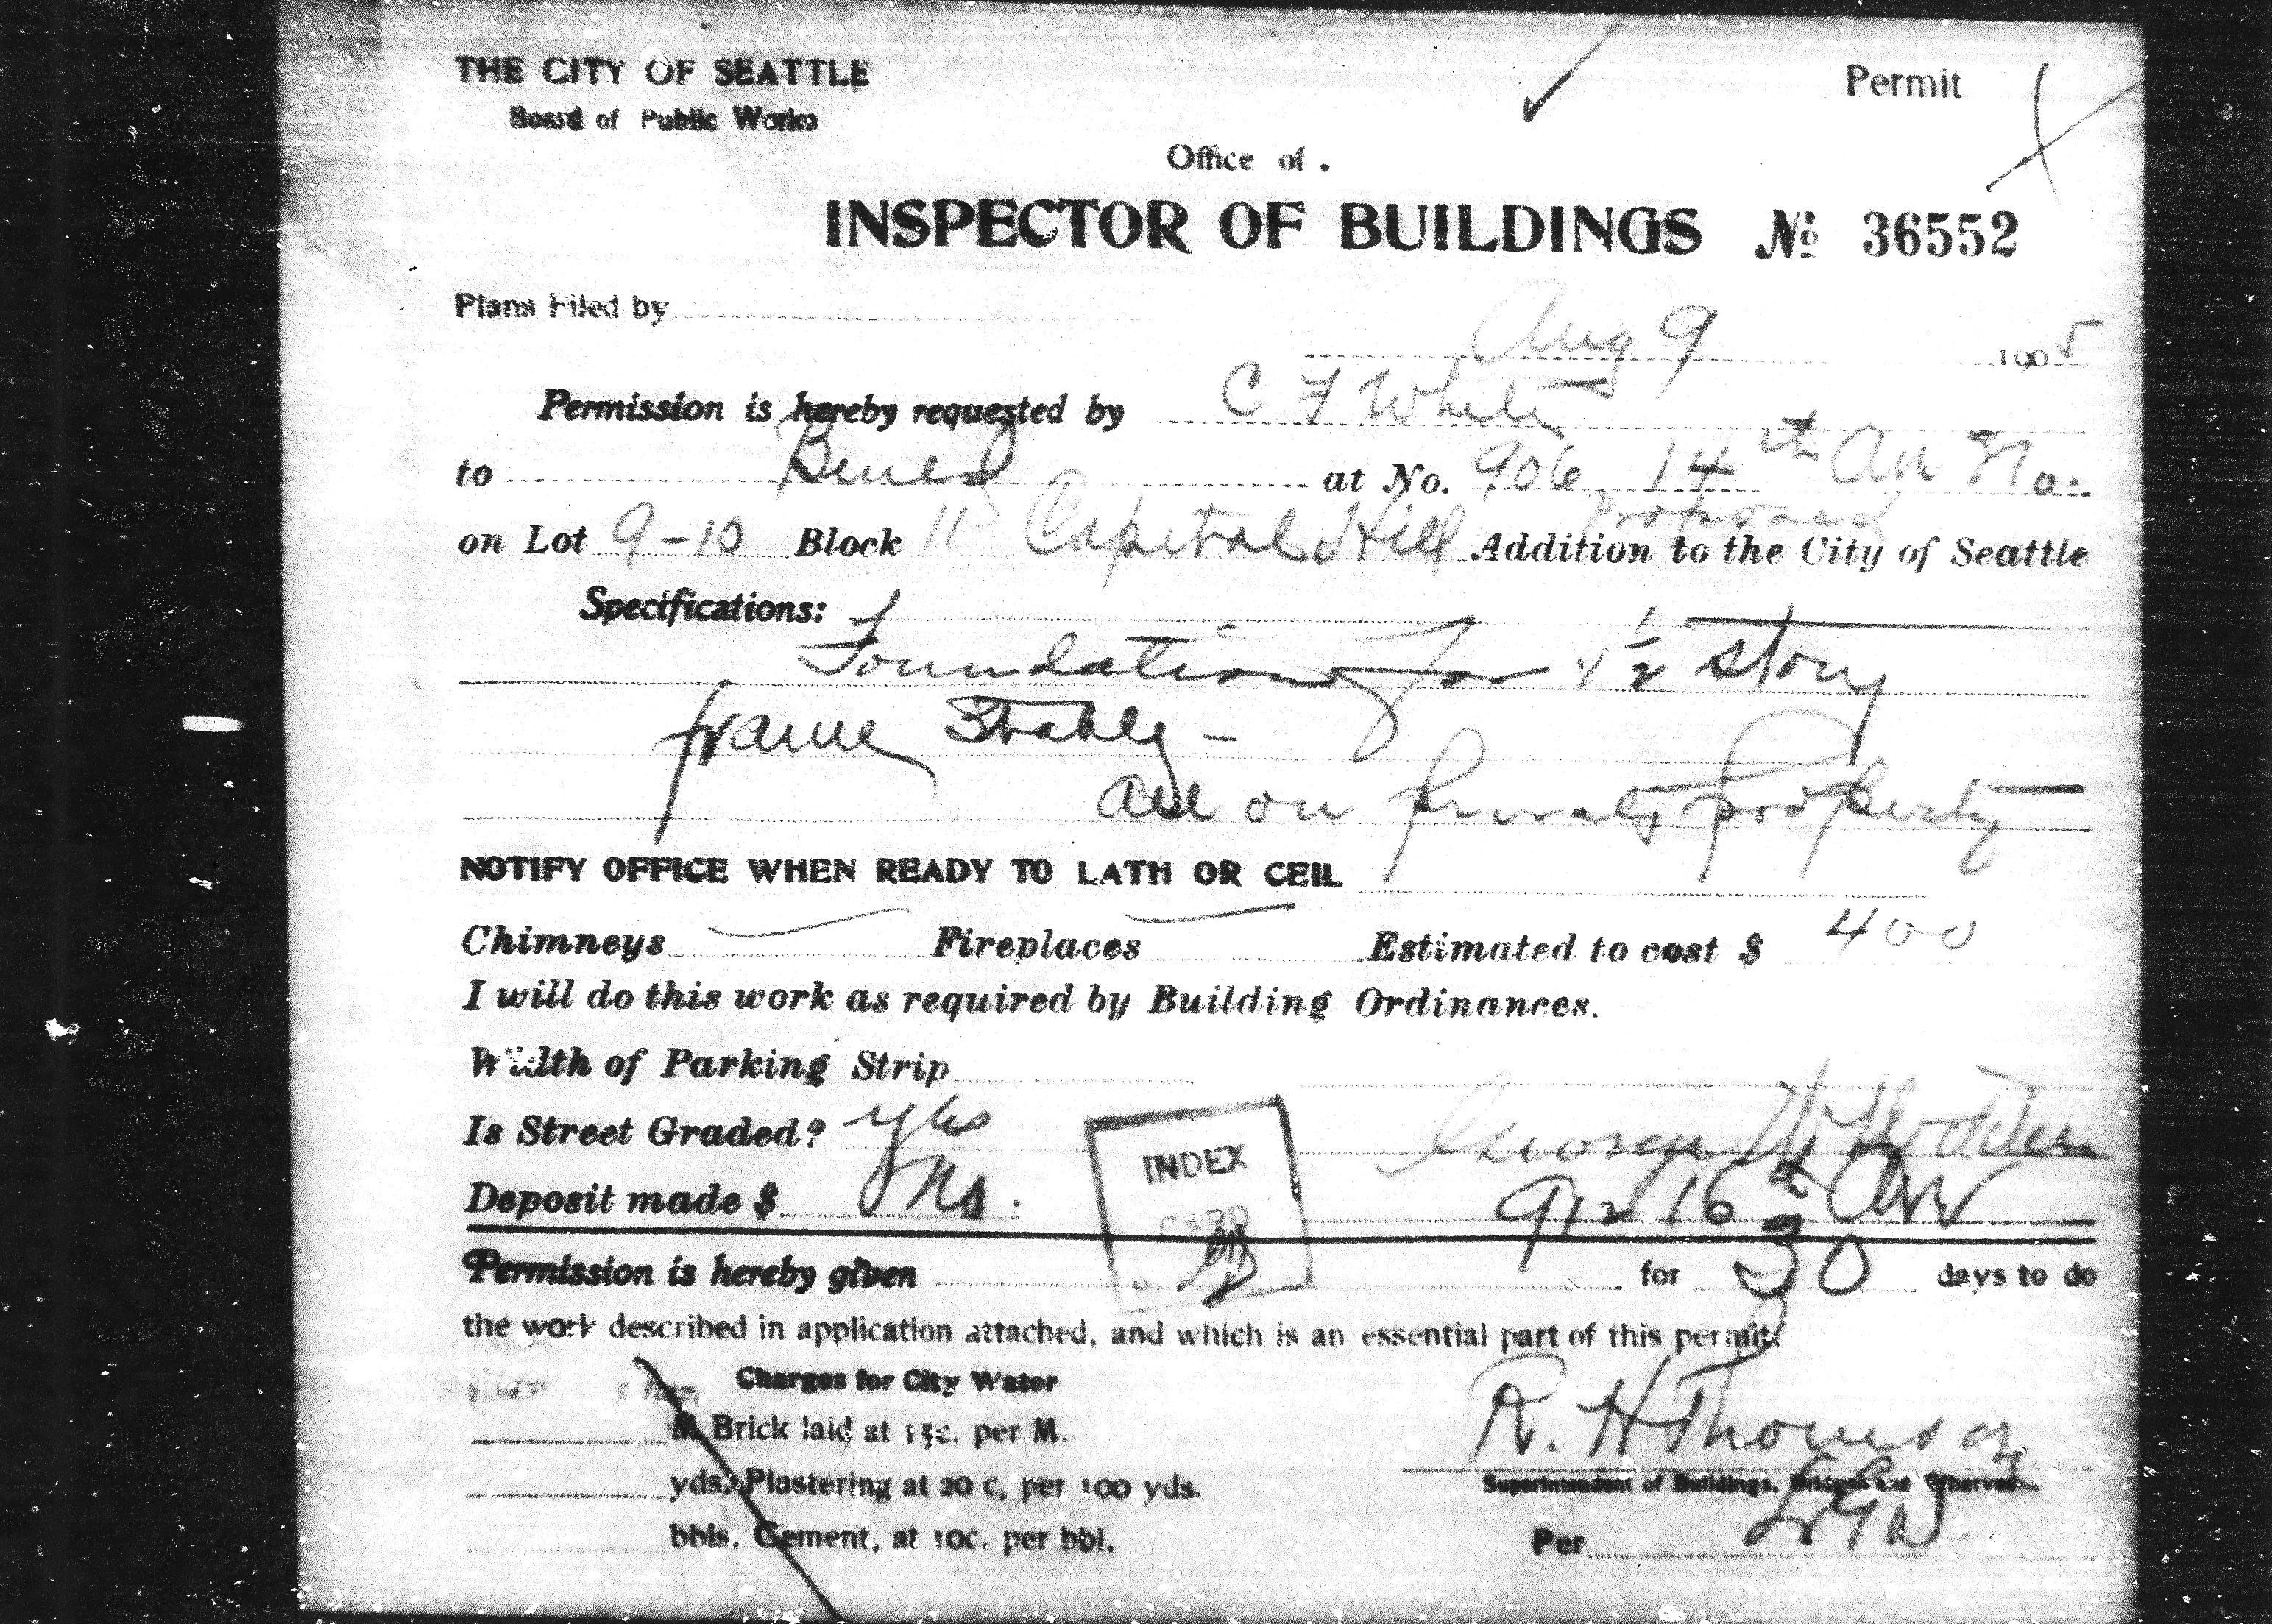 THE CITY OF SEATTLE
Board of Public Works
Permit
Office of .
INSPECTOR OF BUILDINGS № 36552
Plans Filed by
Aug 9 1905
Permission is hereby requested by C F White
to Build at No. 906 14th Av No.
on Lot 9-10 Block 11 Capitol Hill Addition to the City of Seattle
Specifications:
Foundation for 1½ story
frame Stable -
all on private property
NOTIFY OFFICE WHEN READY TO LATH OR CEIL
Chimneys Fireplaces Estimated to cost $ 400
I will do this work as required by Building Ordinances.
Width of Parking Strip
Is Street Graded? Yes George
Deposit made $ No. 912 16th Ave
INDEX
CARD
Permission is hereby given for 30 days to do
the work described in application attached, and which is an essential part of this permit.
Charges for City Water
M. Brick laid at 15c. per M.
yds. Plastering at 20 c, per 100 yds.
bbls. Cement, at 10c. per bbl.
R. H Thomson
Superintendent of Buildings, Bridges and Wharves
Per